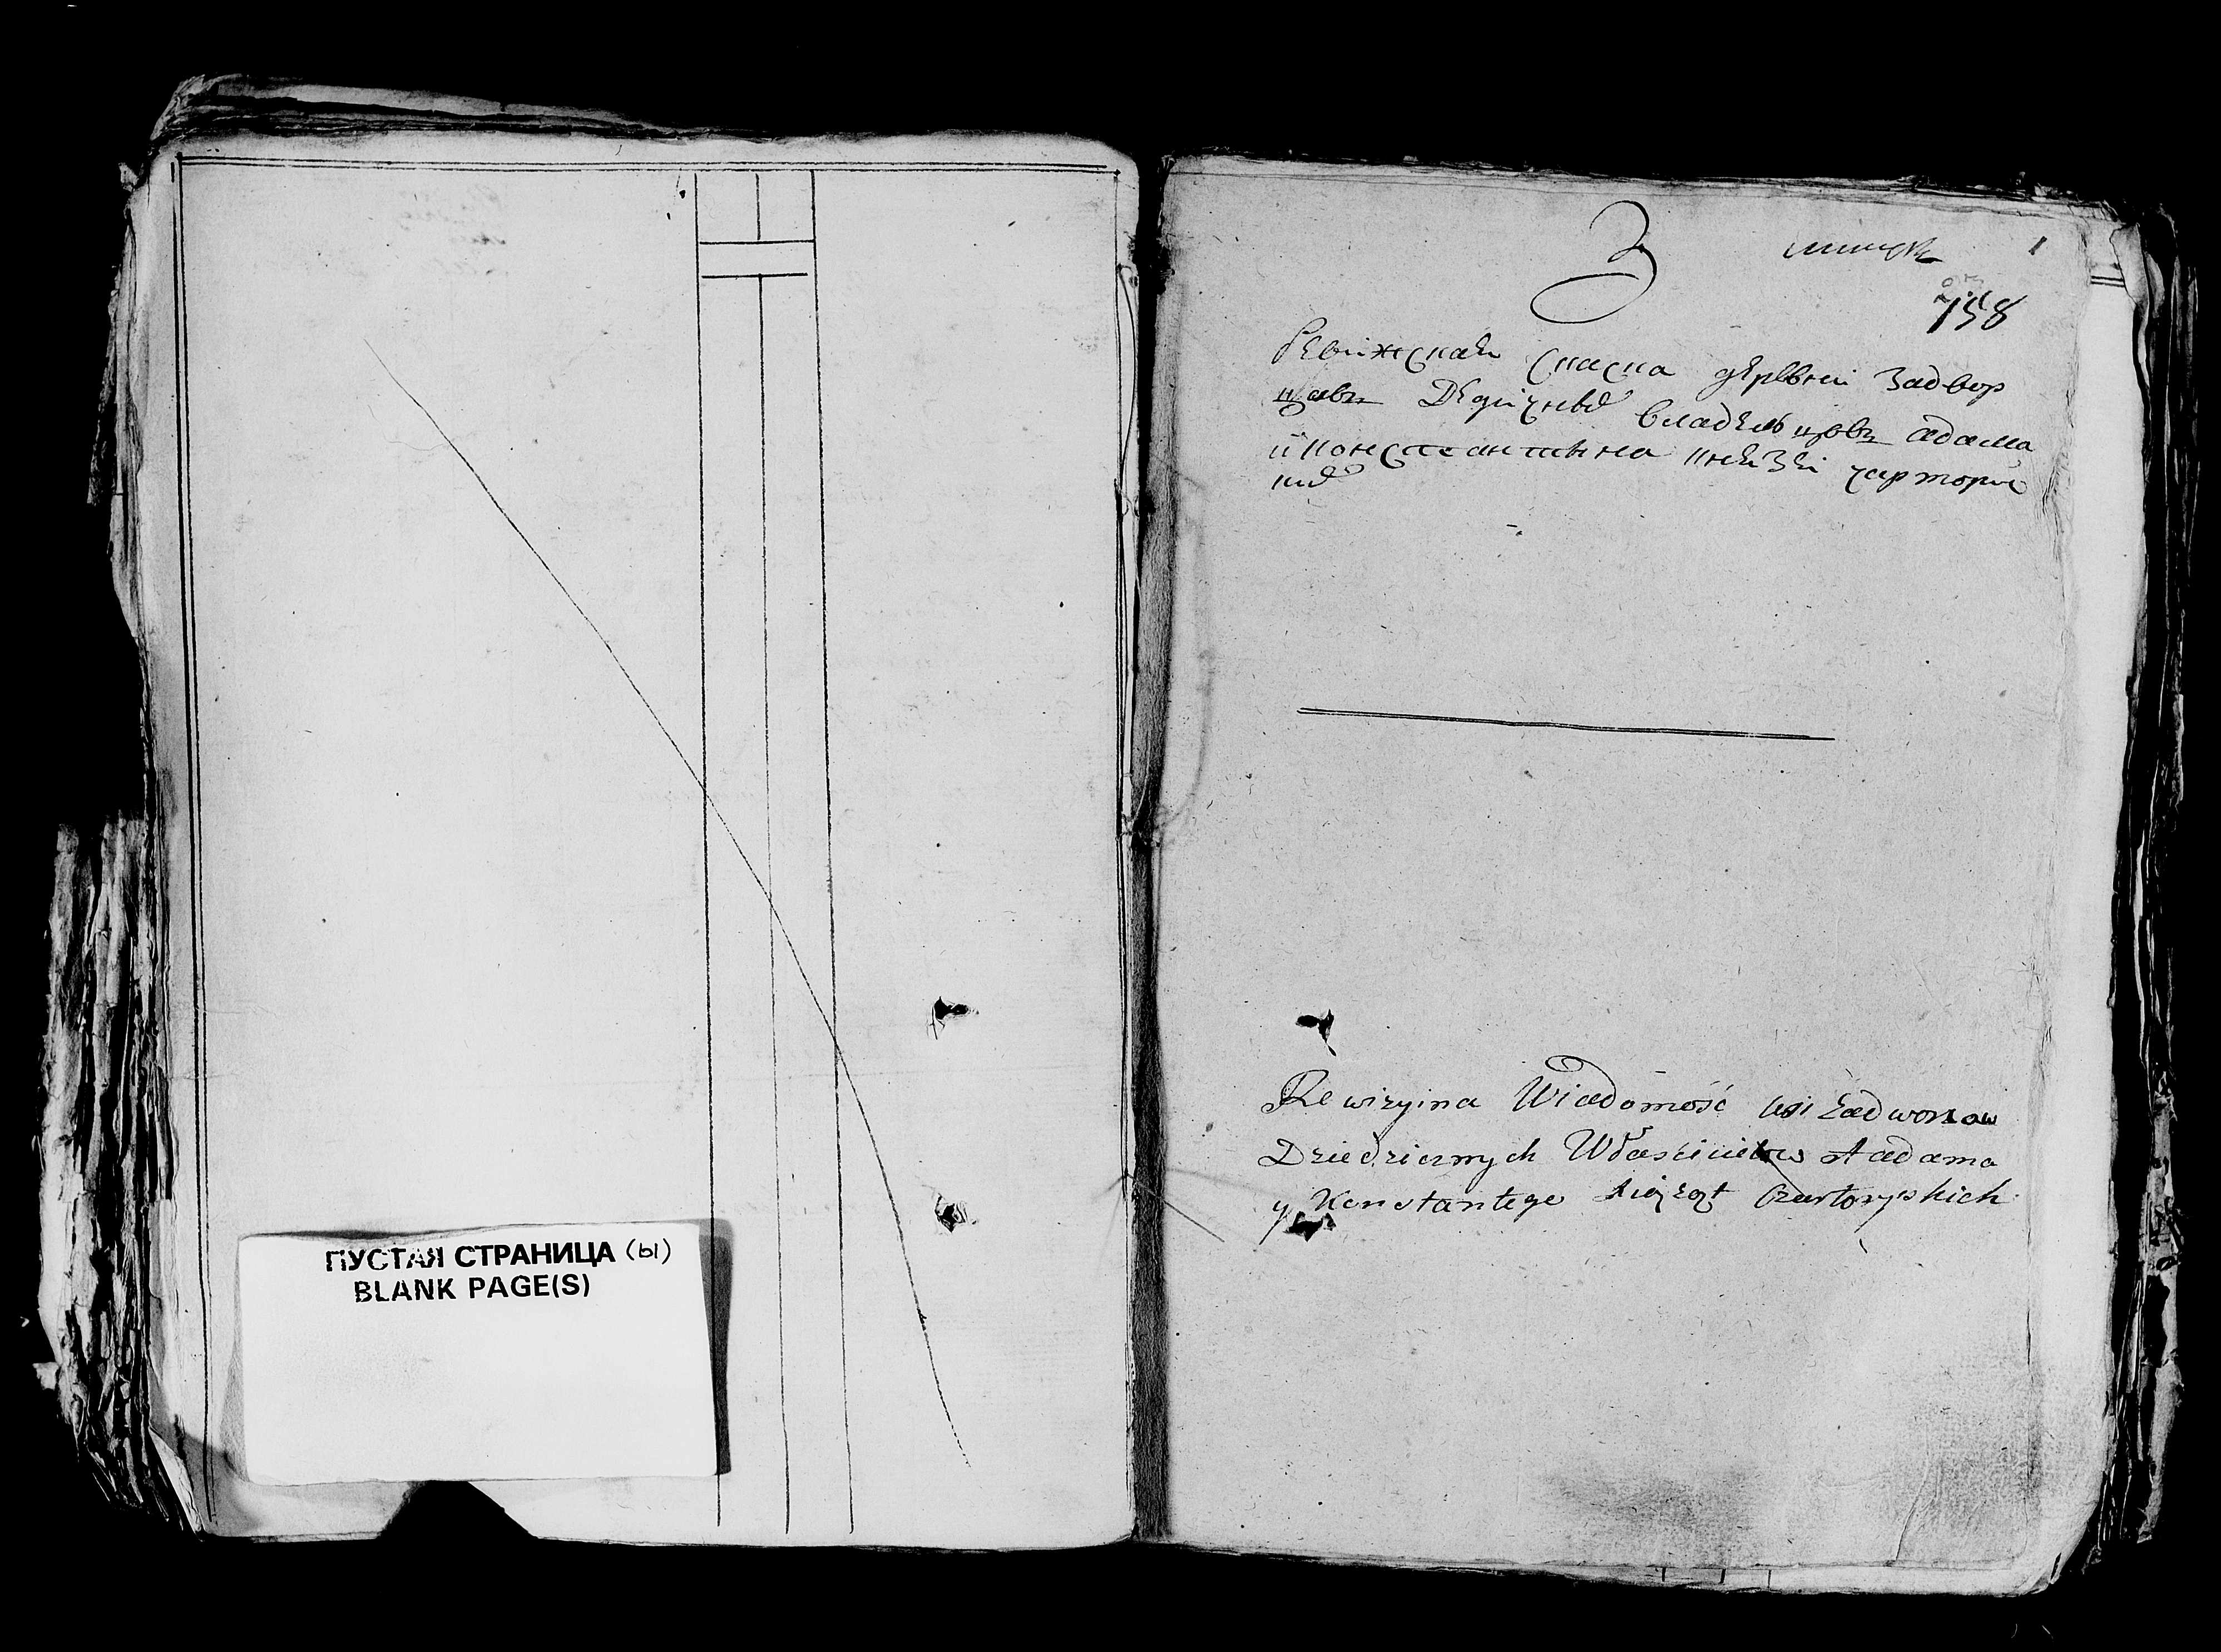 ПУСТАЯ СТРАНИЦА (ы)
BLANK PAGE(S)
З
1
758
Ревижская скаска дервни Задвор
цавъ Дедичныхъ владельцовъ адама
и константина князеи чарторис
кихъ
Rewizyina Wiadomość wsi Zadworzow
Dziedzicznych Właścicielow Aadama
y Konstantego Xiążąt Czartoryskich